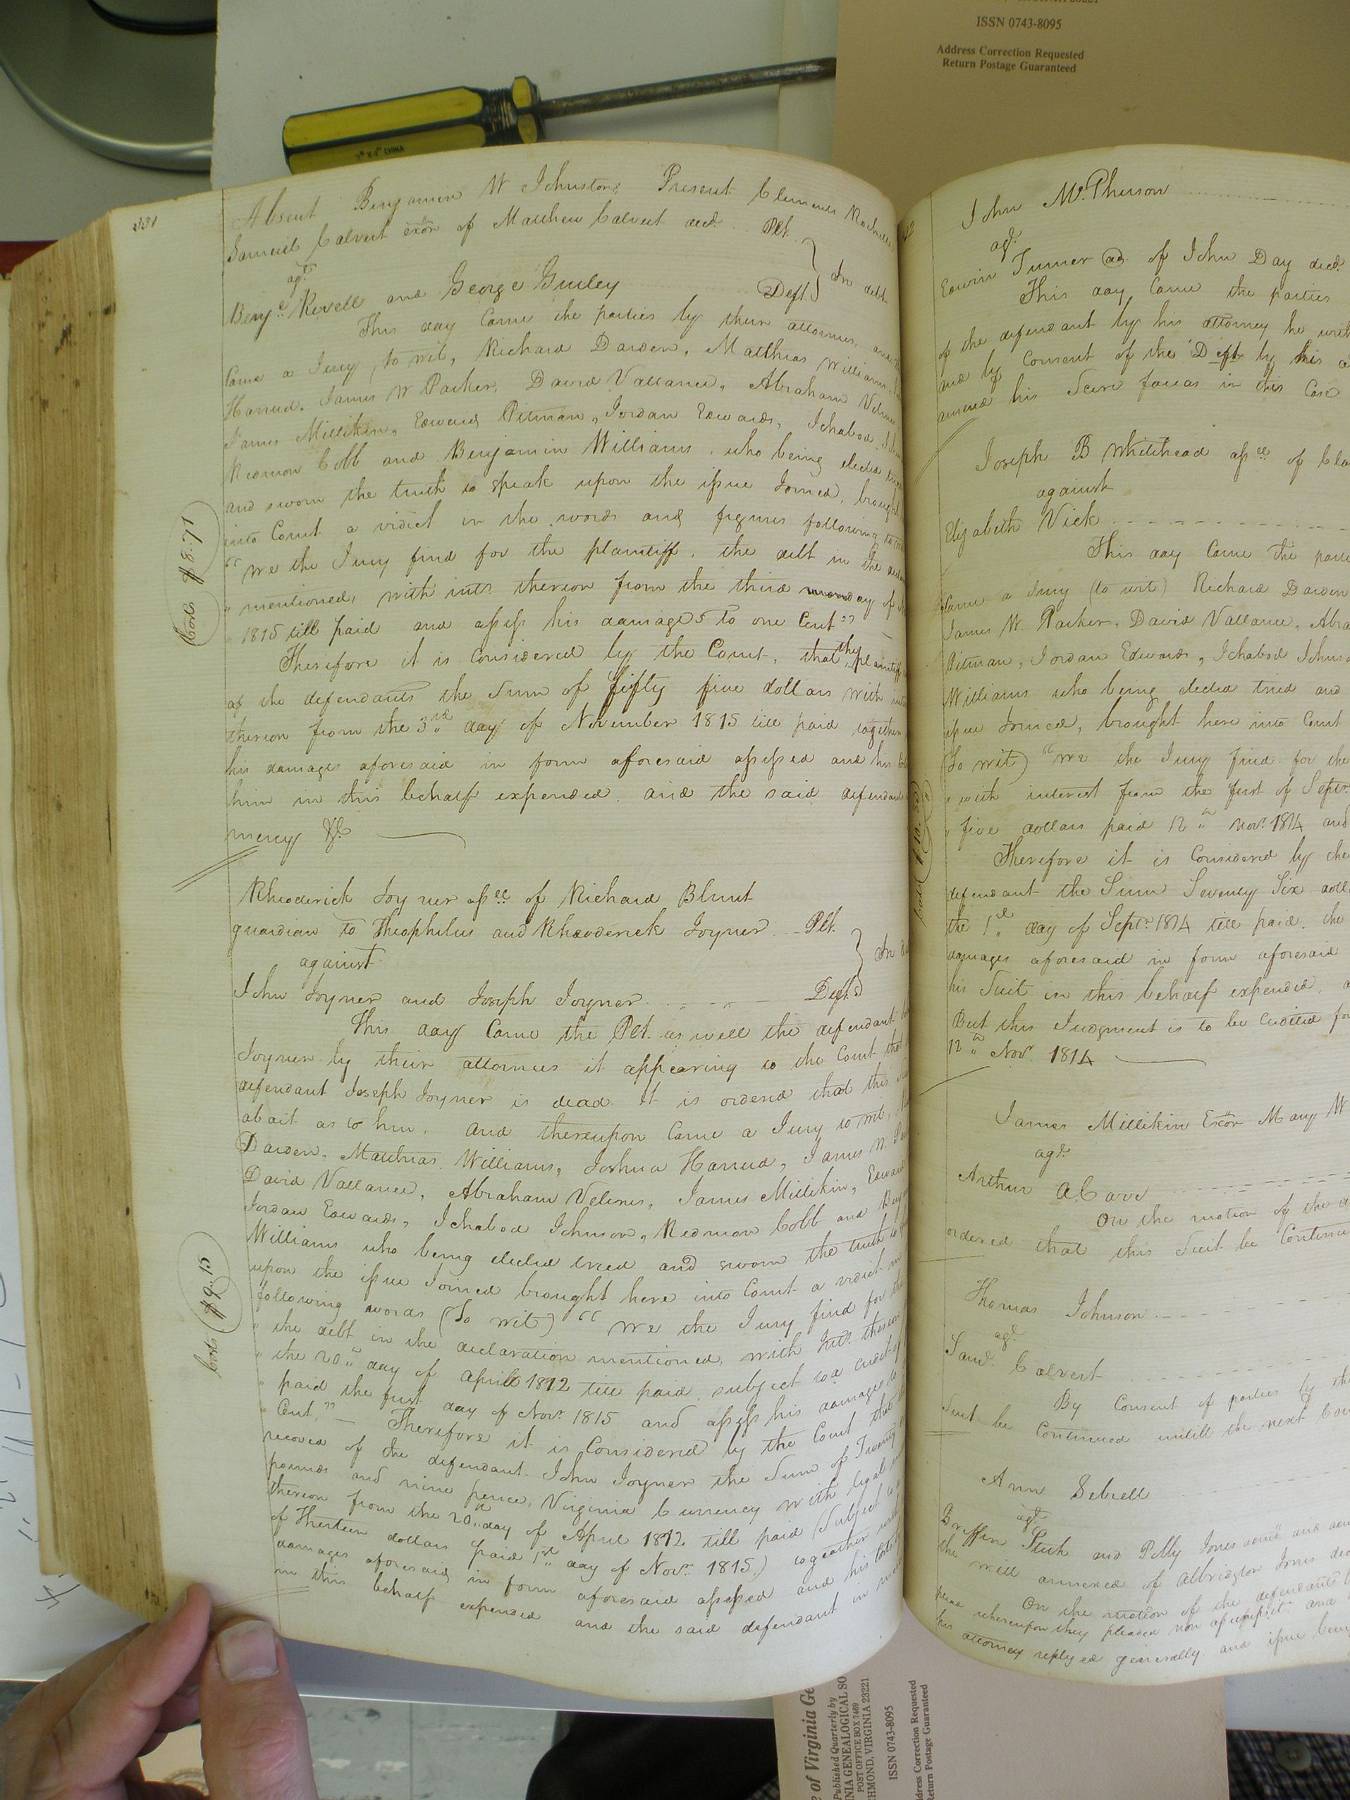 ISSN 0743-8095
Address Correction Requested
Return Postage Guaranteed
CHINA
Absent Benjamin W Johnston Present Clements Rochelle
Samuel Calvert exor of Matthew Calvert decd. Plt.
agt.
In debt
Benja. Revell and George Gurley Defts
This day Came the parties by their attornies and
Came a Jury (to wit, Richard Darden, Matthias Williams,
Harred, James W Parker, David Vallance, Abraham
James Millikin, Edward Pitman, Jordan Edwards, Ichabod
Redmon Cobb and Benjamin Williams, who being elected
and sworn the truth to speak upon the issue Joined, brought
into Court a virdict in the words and figures following
Costs $8.71
"we the Jury find for the plaintiff, the debt in the
" mentioned, with ints. thereon from the third monday of
" 1815 till paid and assess his damages to one Cent"
Therefore it is Considered by the Court, that the plaintiff
of the defendants the Sum of fifty five dollars with
thereon from the 3rd day of November 1815 till paid together
his damages aforesaid in form aforesaid assessed and his
him in this behalf expended. and the said defendants
mercy &c
Rhoderick Joyner assee of Richard Blunt
guardian to Theophilus and Rhoderick Joyner Plt.
against
John Joyner and Joseph Joyner Defts
This day Came the Plt. as well the defendant
Joyner by their attornies it appearing to the Court that
defendant Joseph Joyner is dead. It is ordered that this
abait as to him. And thereupon Came a Jury to wit,
Darden, Matthias Williams, Joshua Harred, James W
David Vallance, Abraham James Millikin, Edward
Jordan Edwards, Ichabod Johnson, Redmon Cobb and
Williams who being elected tried and sworn the truth
upon the issue Joined brought here into Court a virdict
following words (To wit) " we the Jury find for the
Costs $9.15
" the debt in the declaration mentioned, with Ints. thereon
" the 20th day of april 1812 till paid, subject to a credit of
" paid the first day of Novr. 1815 and assess his damages to
" Cent," Therefore it is Considered by the Court that
recover of the defendant John Joyner the Sum of Twenty
pounds and nine pence, Virginia Currency with legal
thereon from the 20th day of April 1812 till paid (subject to
of Thirteen dollars paid 1st day of Novr. 1815) together with
damages aforesaid in form aforesaid assessed and his Costs
in this behalf expended and the said defendant in
John McPherson
agt.
Edwin Turner ad. of John Day decd.
This day Came the parties
of the defendant by his attorney he
and by Consent of the Deft by his
amend his Scire facias in this Case
Joseph B Whitehead assee of
against
Elizabeth Vick
This day Came the parties
Came a Jury (to wit) Richard Darden
James W. Parker, David Vallance,
Pitman, Jordan Edwards, Ichabod
Williams who being elected tried and
issue Joined, brought here into Court
(To wit) "we the Jury find for the
" with interest from the first of Septr.
" five dollars paid 12th novr. 1814 and
Therefore it is Considered by the
defendant the Sum Seventy Six
the 1st day of Septr. 1814 till paid. the
damages aforesaid in form aforesaid
his Suit in this behalf expended,
But this Judgment is to be Credited for
12th Novr. 1814
James Millikin Exor Mary W
agt.
Arthur
On the motion of the
ordered that this Suit be Continued
Thomas Johnson
agt.
Saml. Calvert
By Consent of parties by
Suit be Continued untill the next
Ann Sebrell
agt.
Stith and Polly Jones
the will annexed of Albridgton Jones
On the motion of the defendants
whereupon they pleaded non assumpsit and
his attorney replyed generally and issue being
of Virginia
Published Quarterly by
GENEALOGICAL SO
POST OFFICE BOX 7469
VIRGINIA 23221
ISSN 0743-8095
Address Correction Requested
Return Postage Guaranteed